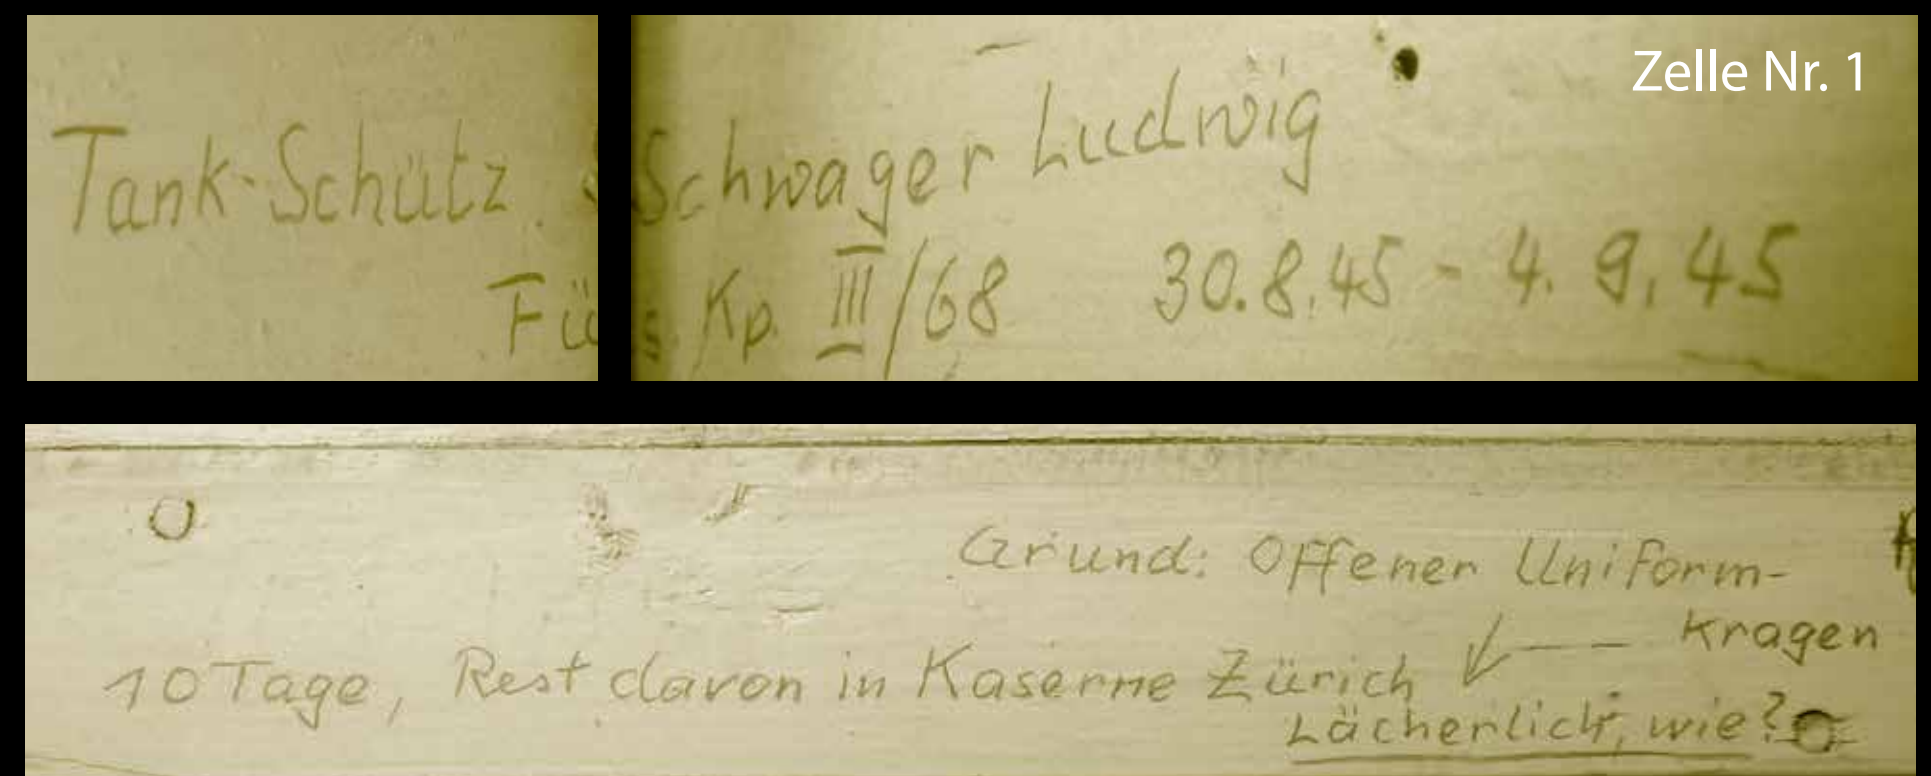 Zelle Nr. 1
Tank-Schütz. Schwager Ludwig
Füs. Kp. III/68 30.8.45 - 4.9.45
Grund: Offener Uniform-
Kragen
10 Tage, Rest davon in Kaserne Zürich
Lächerlich, wie?